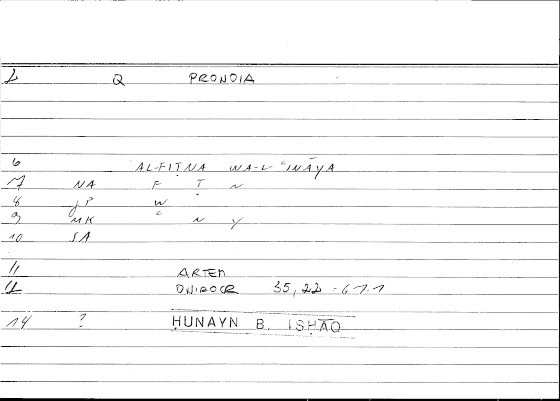 2 Q PRONOIA
6 AL-FIṬNA WA-L-ʿINĀYA
7 NA F Ṭ N
8 JP W
9 MK ʿ N Y
10 SA
11 ARTEM
12 ONIROCR 35,22 - 67.1
14 ? ḤUNAYN B. ISḤĀQ